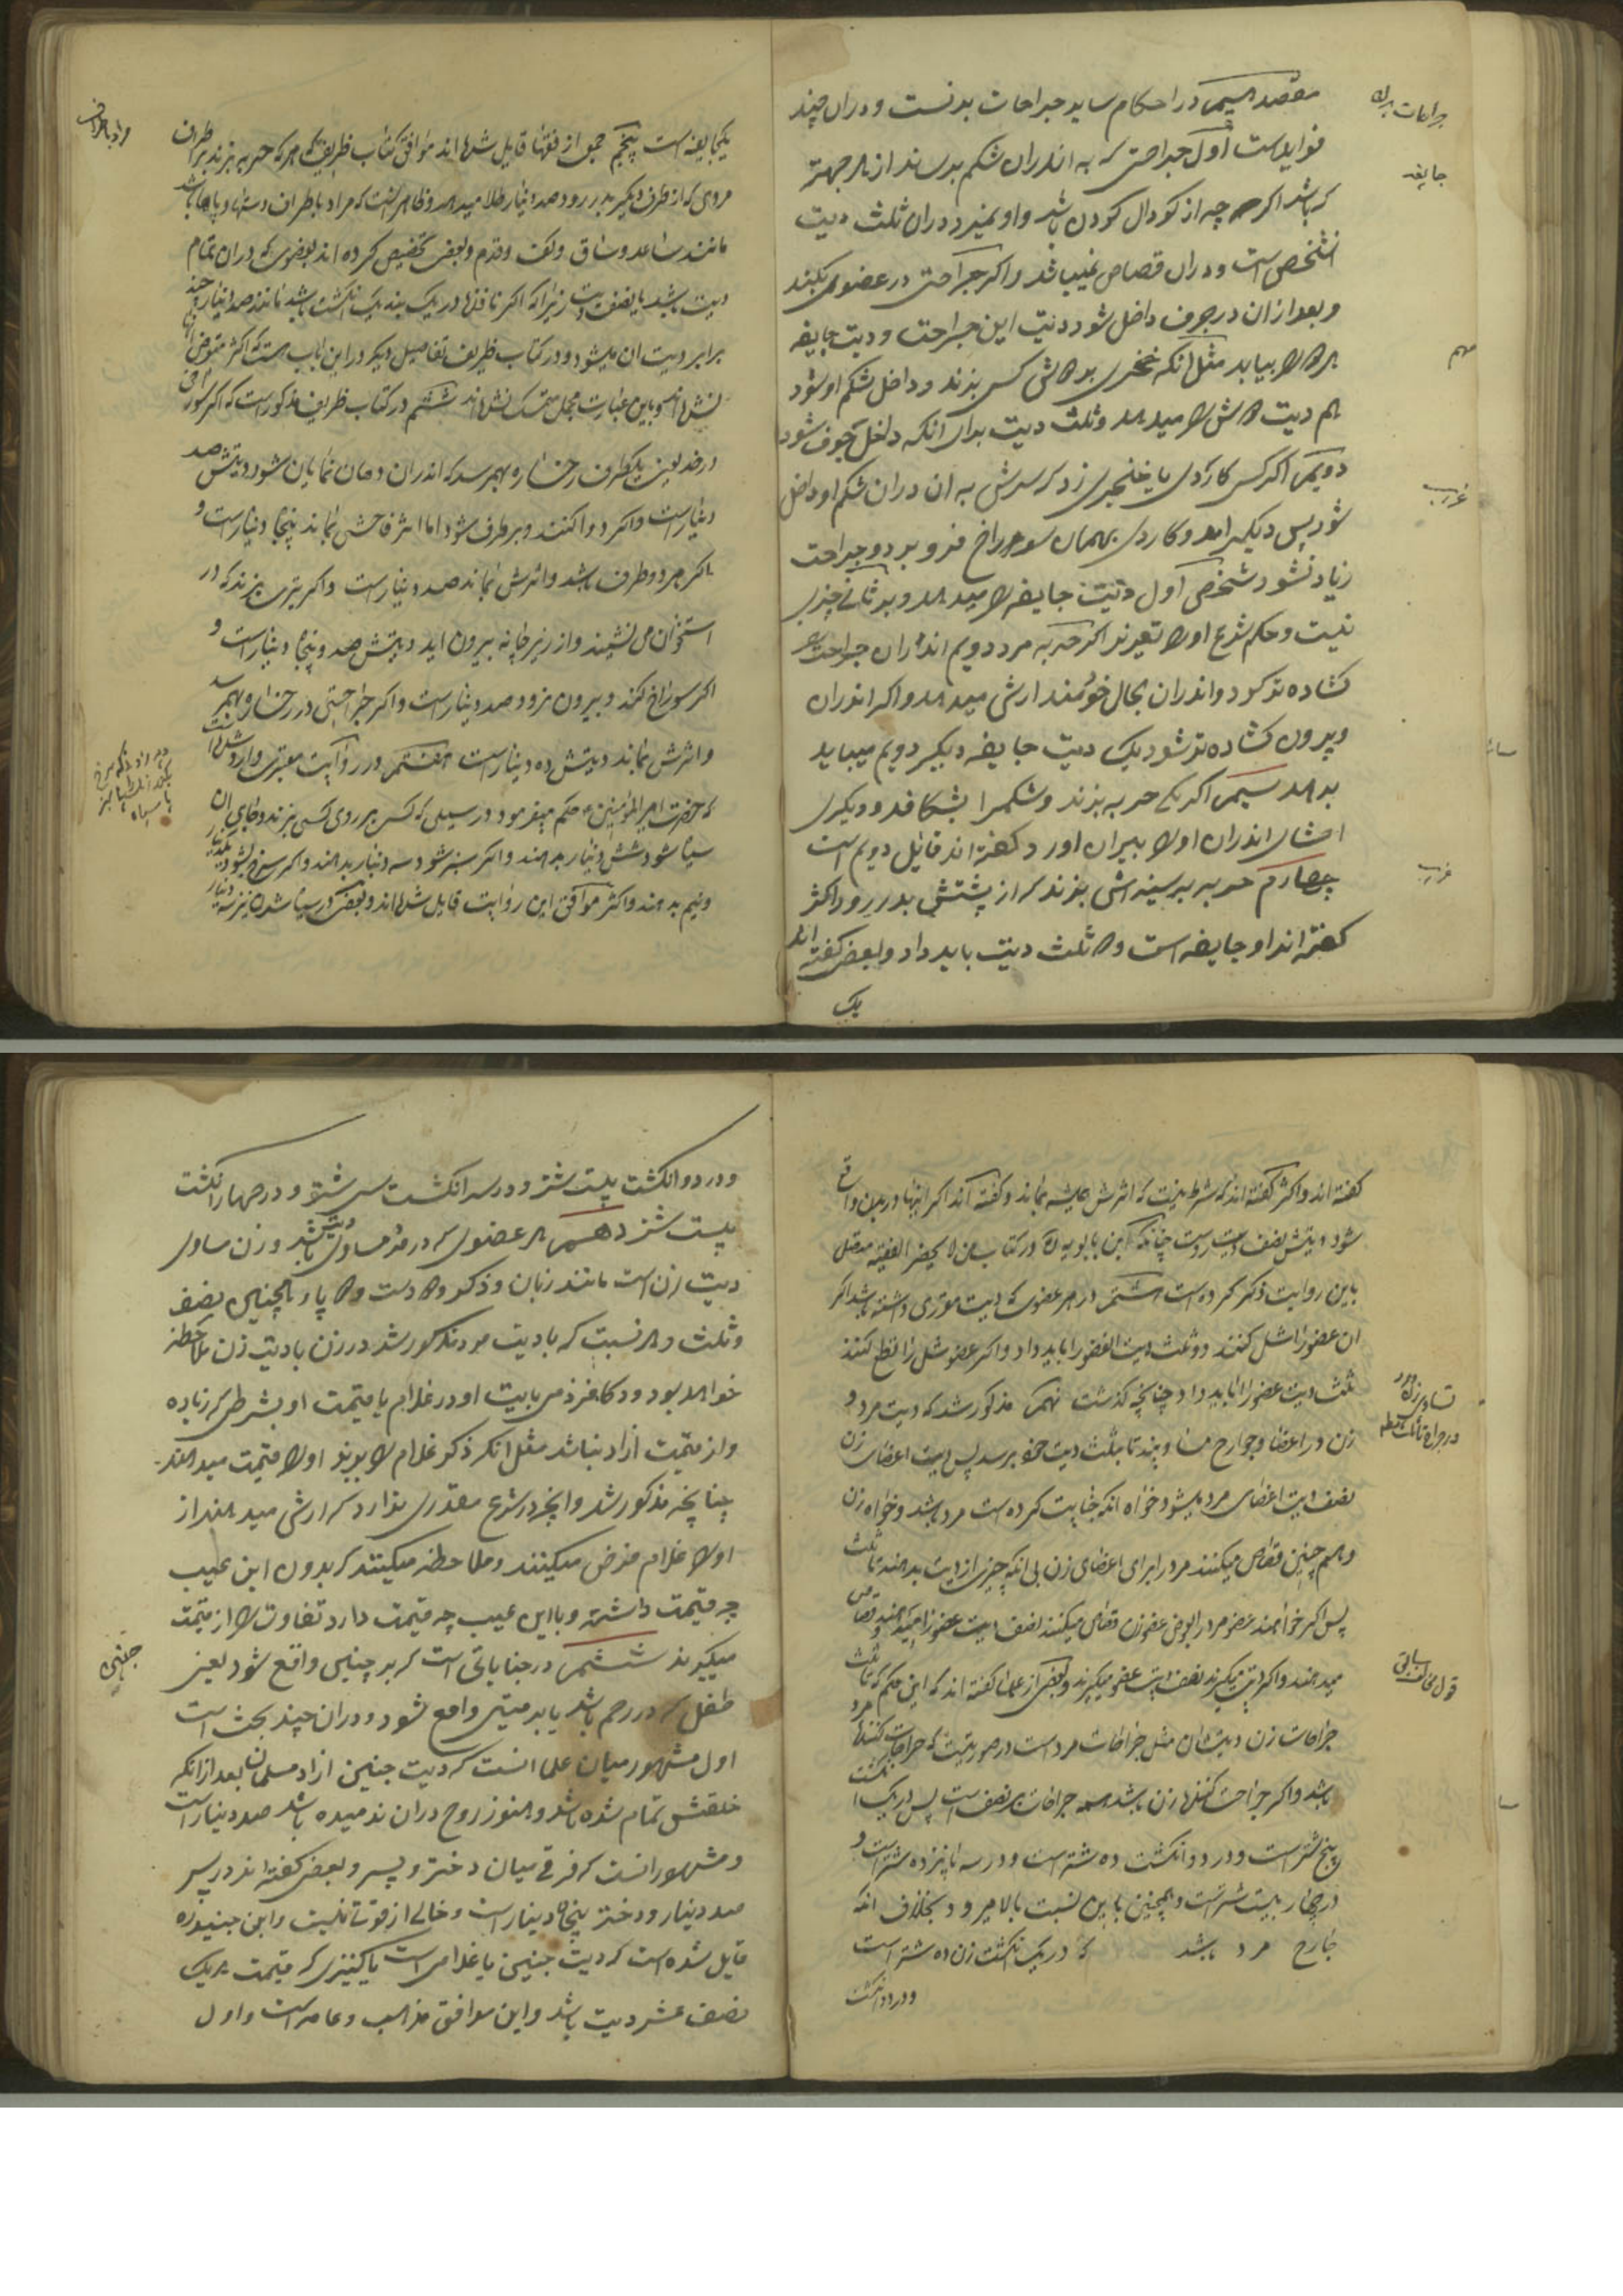 مقصد سیم در احکام سایر جراحات بدنست و دران چند
فوایدست اول جراحتی که به اندران شکم برساند از هر جهتر
که باشد اکر چه از کودال کردن باشد و او نمیرد دران ثلث دیت
انشخص است و دران قصاص نمیباشد و اکر جراحتی در عضوی بکند
و بعد ازان در جوف داخل شود دیت این جراحت و دیت جایفه
هر دو را بیابد مثل انکه خنجری بر رانش کسی بزند و داخل شکم او شود
هم دیت رانش را میدهد و ثلث دیت برای انکه داخل جوف شود
دویم اکر کسی کاردی یا خنجری زد که سرش به ان دران شکم او داخل
شود پس دیگری امد و کاردی بهمان سوراخ فرو برد و جراحت
زیاد نشود شخص اول دیت جایفه را میدهد و بر ثانی چیزی
نیست و حاکم شرع او را تعزیر کند اکر حربه مرد دویم اندران جراحت را
کشاده تر کرد و اندران بحال خود ماند ارش میدهد و اکر اندران
و بیرون کشاده تر شود یک دیت جایفه دیگر دویم میباید
بدهد سیم اکر یکی حربه بزند و شکمرا بشکافد و دیگری
احشای اندران او را بیرون اورد کفته اند قاتل دویم است
چهارم حربه بر سینه اش بزند که از پشتش بدر رود اکثر
کفته اند دو جایفه است و دو ثلث دیت باید داد و بعضی کفته اند
یک
جراحات بدن
جایفه
مهم
غریب
غریب
یکجایفه است پنجم جمعی از فقها قایل شده اند موافق کتاب ظریف که هر که حربه بزند بر اطراف
مردی که از طرف دیگر بدر رود صد دینار طلا میدهد و ظاهر انست که مراد باطراف دستها و پاها باشد
مانند ساعد و ساق و کف و قدم و بعضی تخصیص کرده اند بعضوی که دران تمام
دیت باشد یا نصف دیت زیرا که اکر نافذها در یک بند یک انکشت باشد مانند صد دینار چند
برابر دیت ان میشود و در کتاب ظریف تفاصیل دیگر در این باب هست که اکثر متعرض ان
نشده اند و باین عبارت مجمل متمسک نشده اند ششم در کتاب ظریف مذکور است که اکر سوراخی
در خد یعنی یکطرف رخساره بهم رسد که اندران دهان نمایان شود دیتش صد
دینار است و اکر دوا کنند و برطرف شود اما اثر فاحش بماند پنجاه دینار است و
اکر هر دو طرف باشد و اثرش بماند صد دینار است و اکر تیری بزند که در
استخوان می نشیند و از زیر چانه بیرون اید دیتش صد و پنجاه دینار است و
اکر سوراخ کند و بیرون نرود صد دینار است و اکر جراحتی در رخساره بهم رسد
و اثرش بماند دیتش ده دینار است هفتم در روایت معتبری وارد شده است
که حضرت امیر المؤمنین ع حکم میفرمود در سیلی که کسی بر روی کسی بزند و جای ان
سیاه شود شش دینار بدهند و اکر سبز شود سه دینار بدهند و اکر سرخ شود یکدینار
و نیم بدهند و اکثر موافق این روایت قایل شده اند و بعضی در سیاه شدن نیز سه دینار
کفته اند و اکثر کفته اند که شرط نیست که اثرش همیشه بماند و کفته اند اکر اینها در بدن واقع
شود دیتش نصف دیت روست چنانکه ابن بابویه ره در کتاب من لا یحضر الفقیه متصل
باین روایت ذکر کرده است هشتم در هر عضوی که دیت مقرری داشته باشد اکر
ان عضو را شل کنند دو ثلث دیت العضو را باید داد و اکر عضو شل را قطع کنند
ثلث دیت عضو را باید داد چنانچه کذشت نهم مذکور شد که دیت مرد و
زن در اعضا و جوارح مساویند تا بثلث دیت خود برسد پس دیت اعضای زن
نصف دیت اعضای مرد میشود خواه انکه جنایت کرده است مرد باشد و خواه زن
و هم چنین قصاص میکنند مرد را برای اعضای زن بی انکه چیزی از دیت بدهند تا ثلث
پس اکر خواهند عضو مرد را بعوض عضو زن قصاص میکنند نصف دیت عضو را میدهند و قصاص
میدهند و اکر دیت میکیرند نصف دیت عضو میکیرند و بعضی از علما کفته اند که این حکم که تا ثلث
جراحات زن دیتشان مثل جراحات مرد است در صورتیست که جراحت کننده مرد
باشد و اکر جراحت کننده زن باشد همه جراحات بر نصف است پس در یک انکشت
پنج شتر است و در دو انکشت ده شتر است و در سه پانزده شتر است و
در چهار بیست شتر است و همچنین باین نسبت بالا میرود بخلاف انکه
جارح مرد باشد که در یک انکشت زن ده شتر است
و در دو انکشت
و در دو انکشت بیست شتر و در سه انکشت سی شتر و در چهار انکشت
بیست شتر دهم هر عضوی که در مرد مساوی دیتش باشد و زن مساوی
دیت زن است مانند زبان و ذکر و دو دست و دو پا و همچنین نصف
و ثلث و هر نسبت که با دیت مرد مذکور شد در زن با دیت زن ملاحظه
خواهد بود و در کافر ذمی با دیت او در غلام با قیمت او بشرطی که زیاده
و از قیمت ازاد نباشد مثل انکه ذکر غلام را ببرند او را قیمت میدهند
چنانچه مذکور شد و انچه در شرع مقدری ندارد که ارش میدهند از
او را غلام فرض میکنند و ملاحظه میکنند که بدون این عیب
چه قیمت داشته و با این عیب چه قیمت دارد تفاوت را از قیمت
میکیرند ششم در جنایاتی است که بر جنین واقع شود یعنی
طفل که در رحم باشد یا بر میتی واقع شود و دران چند بحث است
اول مشهور میان علما انست که دیت جنین ازاد مسلمان بعد ازانکه
خلقتش تمام شده باشد و هنوز روح دران ندمیده باشد صد دینار است
و مشهور انست که فرقی میان دختر و پسر و بعضی کفته اند در پسر
صد دینار و دختر پنجاه دینار است و خالی از قوتی نیست و ابن جنید ره
قایل شده است که دیت جنین یا غلامی است یا کنیزی که قیمت هر یک
نصف عشر دیت باشد و این موافق مذاهب عامه است و اول
جنین